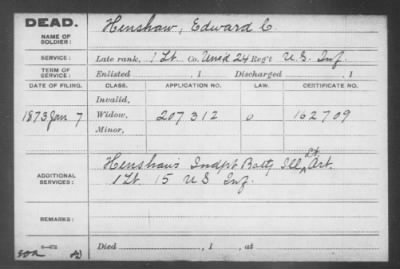 DEAD.
NAME OF SOLDIER: Henshaw, Edward C.
SERVICE: Late rank, 1 Lt. Co. Unas'd 24 Reg't U.S. Inf.
TERM OF SERVICE: Enlisted , 1 Discharged , 1
DATE OF FILING. CLASS. APPLICATION NO. LAW. CERTIFICATE NO.
Invalid,
1873 Jan 7 Widow, 207312 0 162709
Minor,
ADDITIONAL SERVICES: Henshaw's Indpt Batty Ill Lt Art.
1 Lt. 15 U S Inf.
REMARKS:
Died , 1 , at